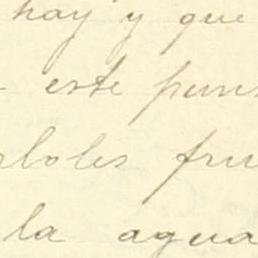 hay y que
este puns
rboles fru
la agua